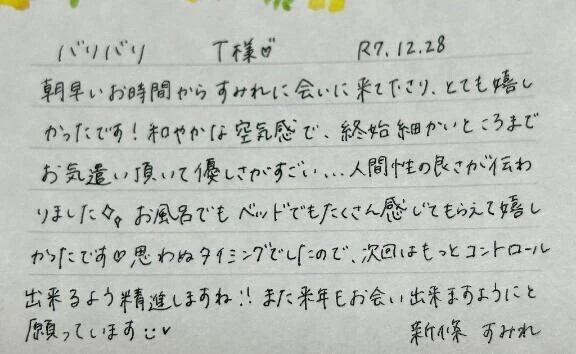 バリバリ T様♡ R7.12.28
朝早いお時間からすみれに会いに来て下さり、とても嬉し
かったです！和やかな空気感で、終始細かいところまで
お気遣い頂いて優しさがすごい...人間性の良さが伝わ
りました✧。お風呂でもベッドでもたくさん感じてもらえて嬉し
かったです♡思わぬタイミングでしたので、次回はもっとコントロール
出来るよう精進しますね!!また来年もお会い出来ますようにと
願っています☺♥ 新條 すみれ